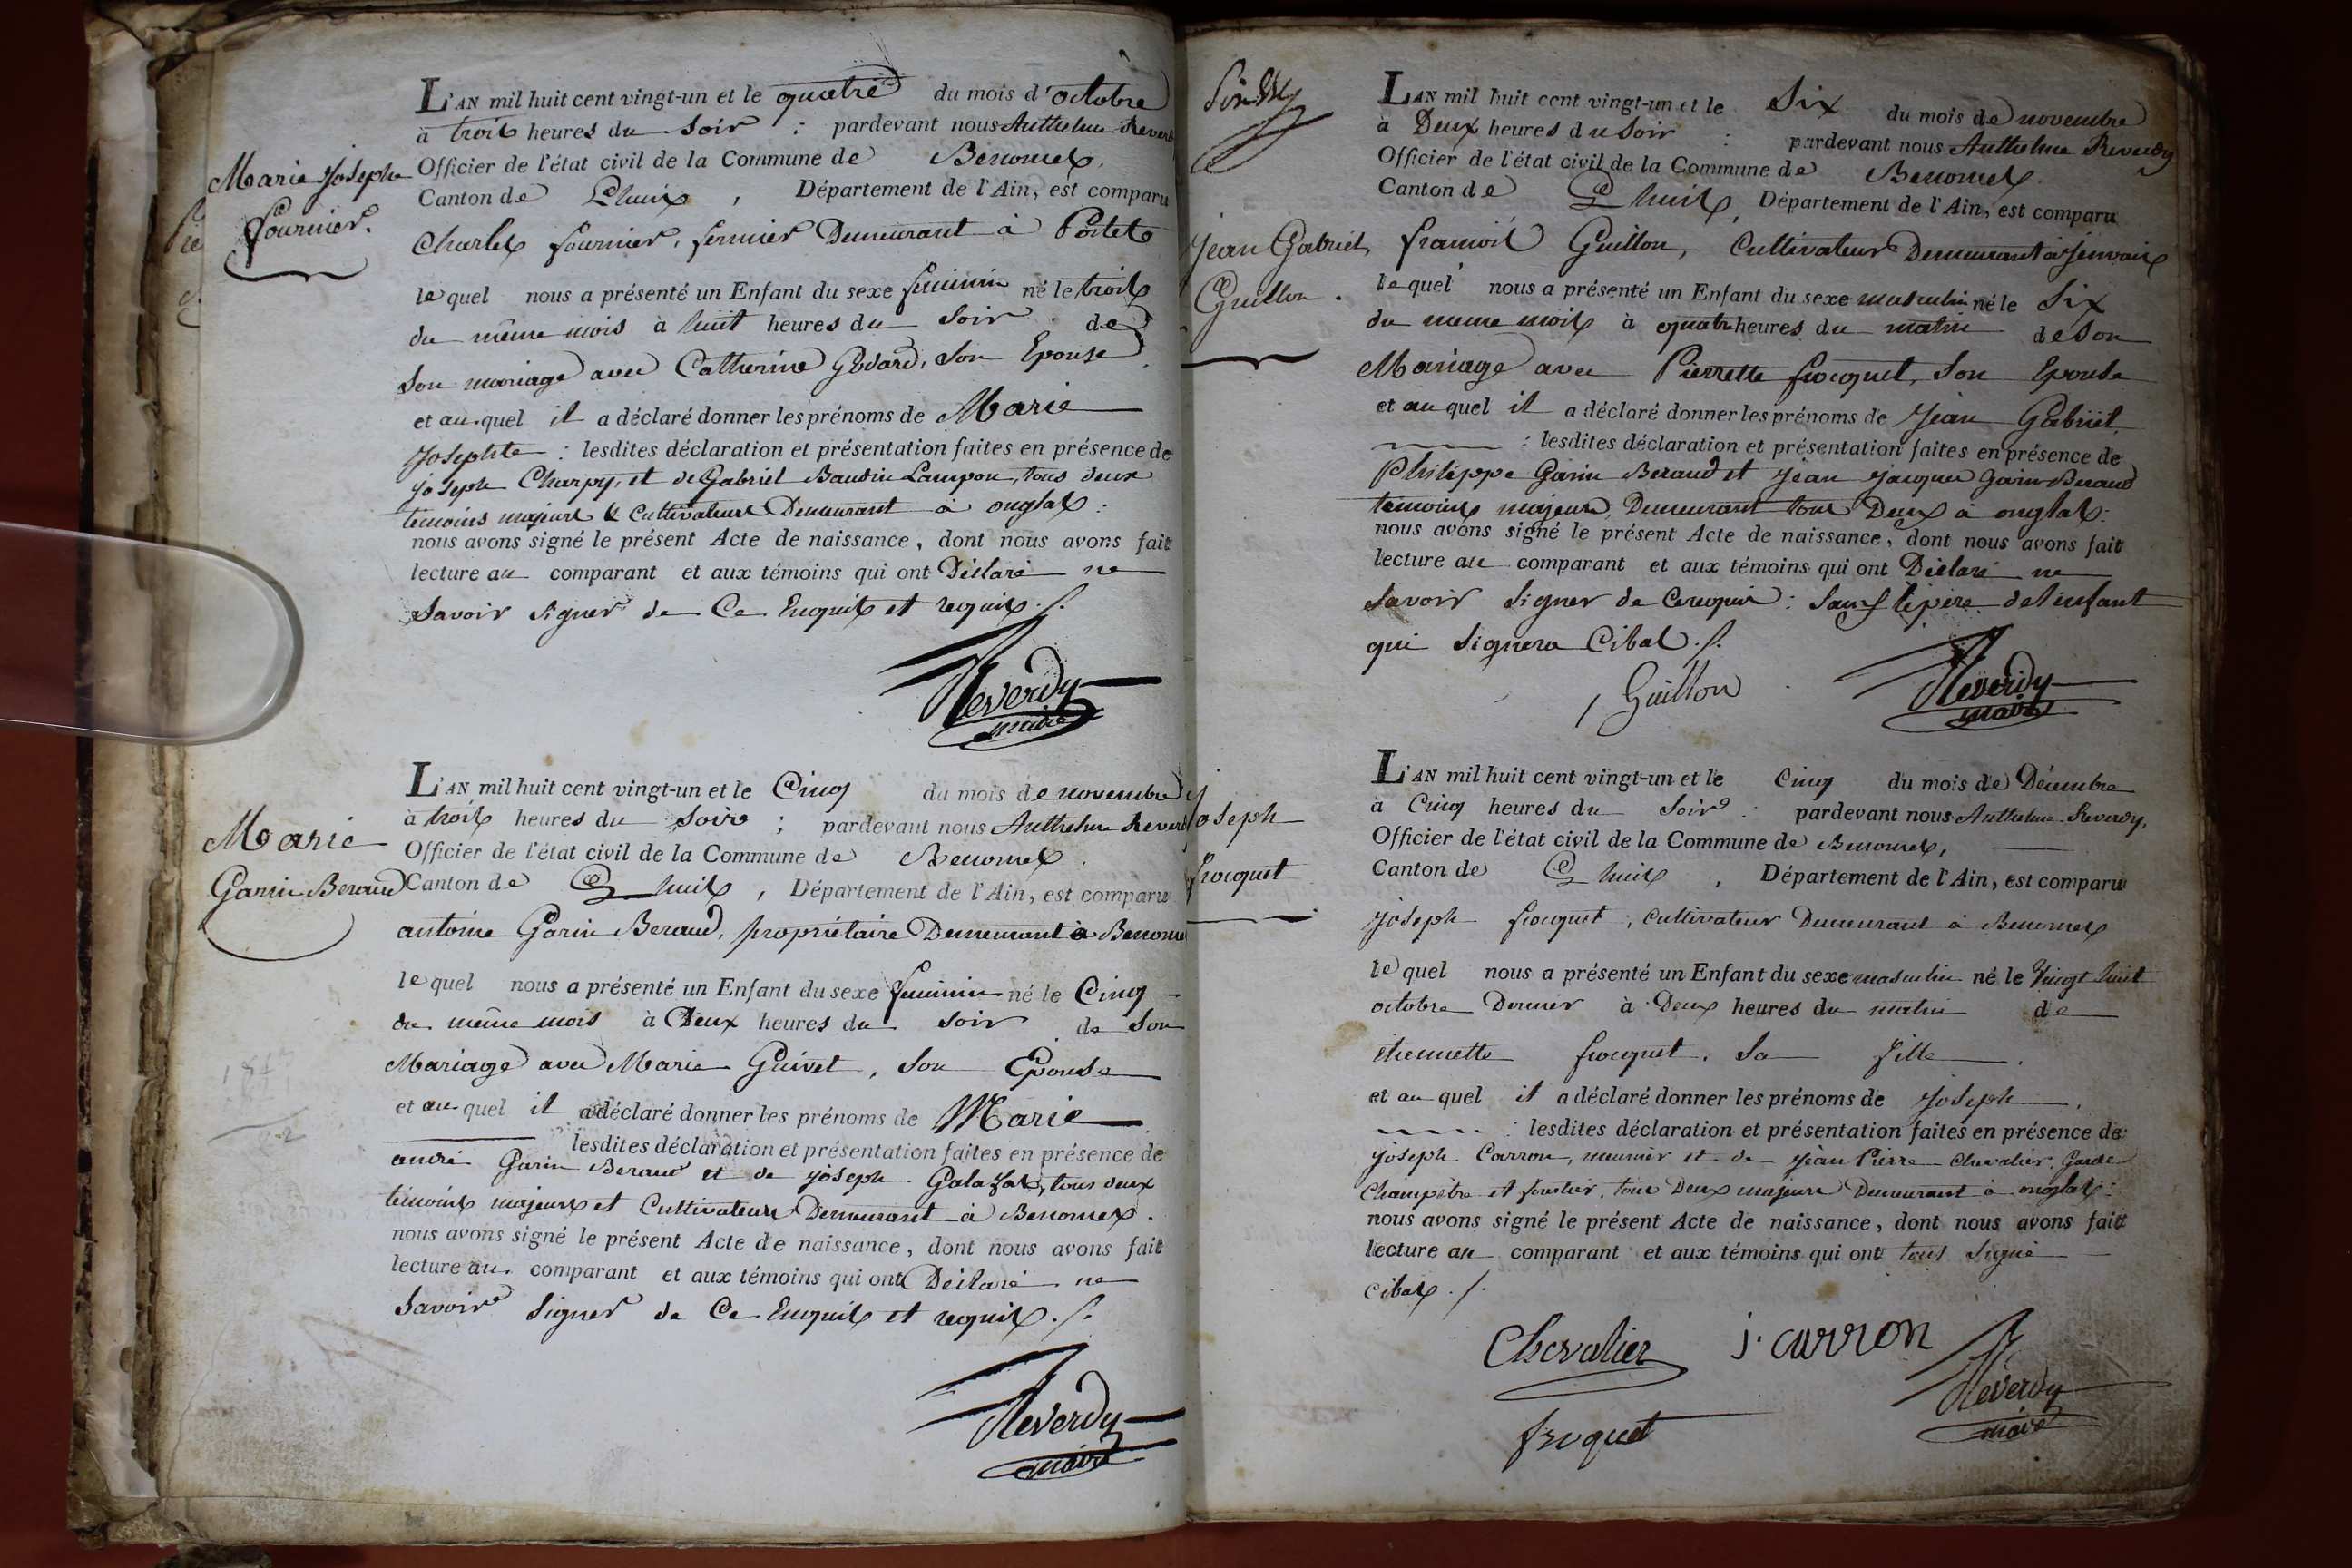 Marie Josephe
Fournier.
L'AN mil huit cent vingt-un et le quatre du mois d'octobre
à trois heures du Soir : pardevant nous Anthelme
Officier de l'état civil de la Commune de Benonces,
Canton de Lhuis, Département de l'Ain, est comparu
Charles fournier, fermier Demeurant à Portes
lequel nous a présenté un Enfant du sexe feminin né le trois
du même mois à huit heures du Soir de
Son mariage avec Catherine Godard, Son Epouse
et auquel il a déclaré donner les prénoms de Marie
Josephte : lesdites déclaration et présentation faites en présence de
Joseph Charpy, et de Gabriel Baudin Lampon, tous deux
témoins majeurs & Cultivateurs Demeurant à onglas :
nous avons signé le présent Acte de naissance, dont nous avons fait
lecture au comparant et aux témoins qui ont Déclaré ne
Savoir Signer de Ce Enquis et requis ./.
Reverdy
maire
Marie
Garin Beraud
L'AN mil huit cent vingt-un et le Cinq du mois de novembre
à trois heures du Soir ; pardevant nous Anthelme
Officier de l'état civil de la Commune de Benonces.
Canton de Lhuis, Département de l'Ain, est comparu
antoine Garin Beraud, propriétaire Demeurant à
lequel nous a présenté un Enfant du sexe feminin né le Cinq
du même mois à Deux heures du Soir de Son
Mariage avec Marie Guivet, Son Epouse
et auquel il a déclaré donner les prénoms de Marie
lesdites déclaration et présentation faites en présence de
andré Garin Beraud et de Joseph tous deux
témoins majeurs et Cultivateurs Demeurant à Benonces.
nous avons signé le présent Acte de naissance, dont nous avons fait
lecture au comparant et aux témoins qui ont Déclaré ne
Savoir Signer de Ce Enquis et requis ./.
Reverdy
maire
Jean Gabriel
Guillon.
L'AN mil huit cent vingt-un et le Six du mois de novembre
à Deux heures du Soir : pardevant nous Anthelme Reverdy
Officier de l'état civil de la Commune de Benonces.
Canton de Lhuis, Département de l'Ain, est comparu
françois Guillon, Cultivateur Demeurant à
lequel nous a présenté un Enfant du sexe masculin né le Six
du meme mois à quatre heures du matin de Son
Mariage avec Pierrette froquet, Son Epouse
et auquel il a déclaré donner les prénoms de Jean Gabriel
: lesdites déclaration et présentation faites en présence de
Philippe Garin Beraud et Jean Jacques Garin Beraud
témoins majeurs, Demeurant tous Deux à onglas :
nous avons signé le présent Acte de naissance, dont nous avons fait
lecture au comparant et aux témoins qui ont Déclaré ne
Savoir Signer de Ce requis : Sauf le père de l'enfant
qui Signera Cibas ./.
Guillon
Reverdy
maire
Joseph
froquet
L'AN mil huit cent vingt-un et le Cinq du mois de Décembre
à Cinq heures du Soir : pardevant nous Anthelme Reverdy,
Officier de l'état civil de la Commune de Benonces,
Canton de Lhuis, Département de l'Ain, est comparu
Joseph froquet, Cultivateur Demeurant à Benonces
lequel nous a présenté un Enfant du sexe masculin né le Vingt huit
octobre Dernier à Deux heures du matin de
etiennette froquet, Sa fille.
et auquel il a déclaré donner les prénoms de Joseph,
: lesdites déclaration et présentation faites en présence de
Joseph Carron, meunier et de Jean Pierre Chevalier, Garde
Champêtre et forestier, tous Deux majeurs Demeurant à onglas :
nous avons signé le présent Acte de naissance, dont nous avons fait
lecture au comparant et aux témoins qui ont tous Signé
cibas ./.
Chevalier
j. carron
Reverdy
maire
froquet